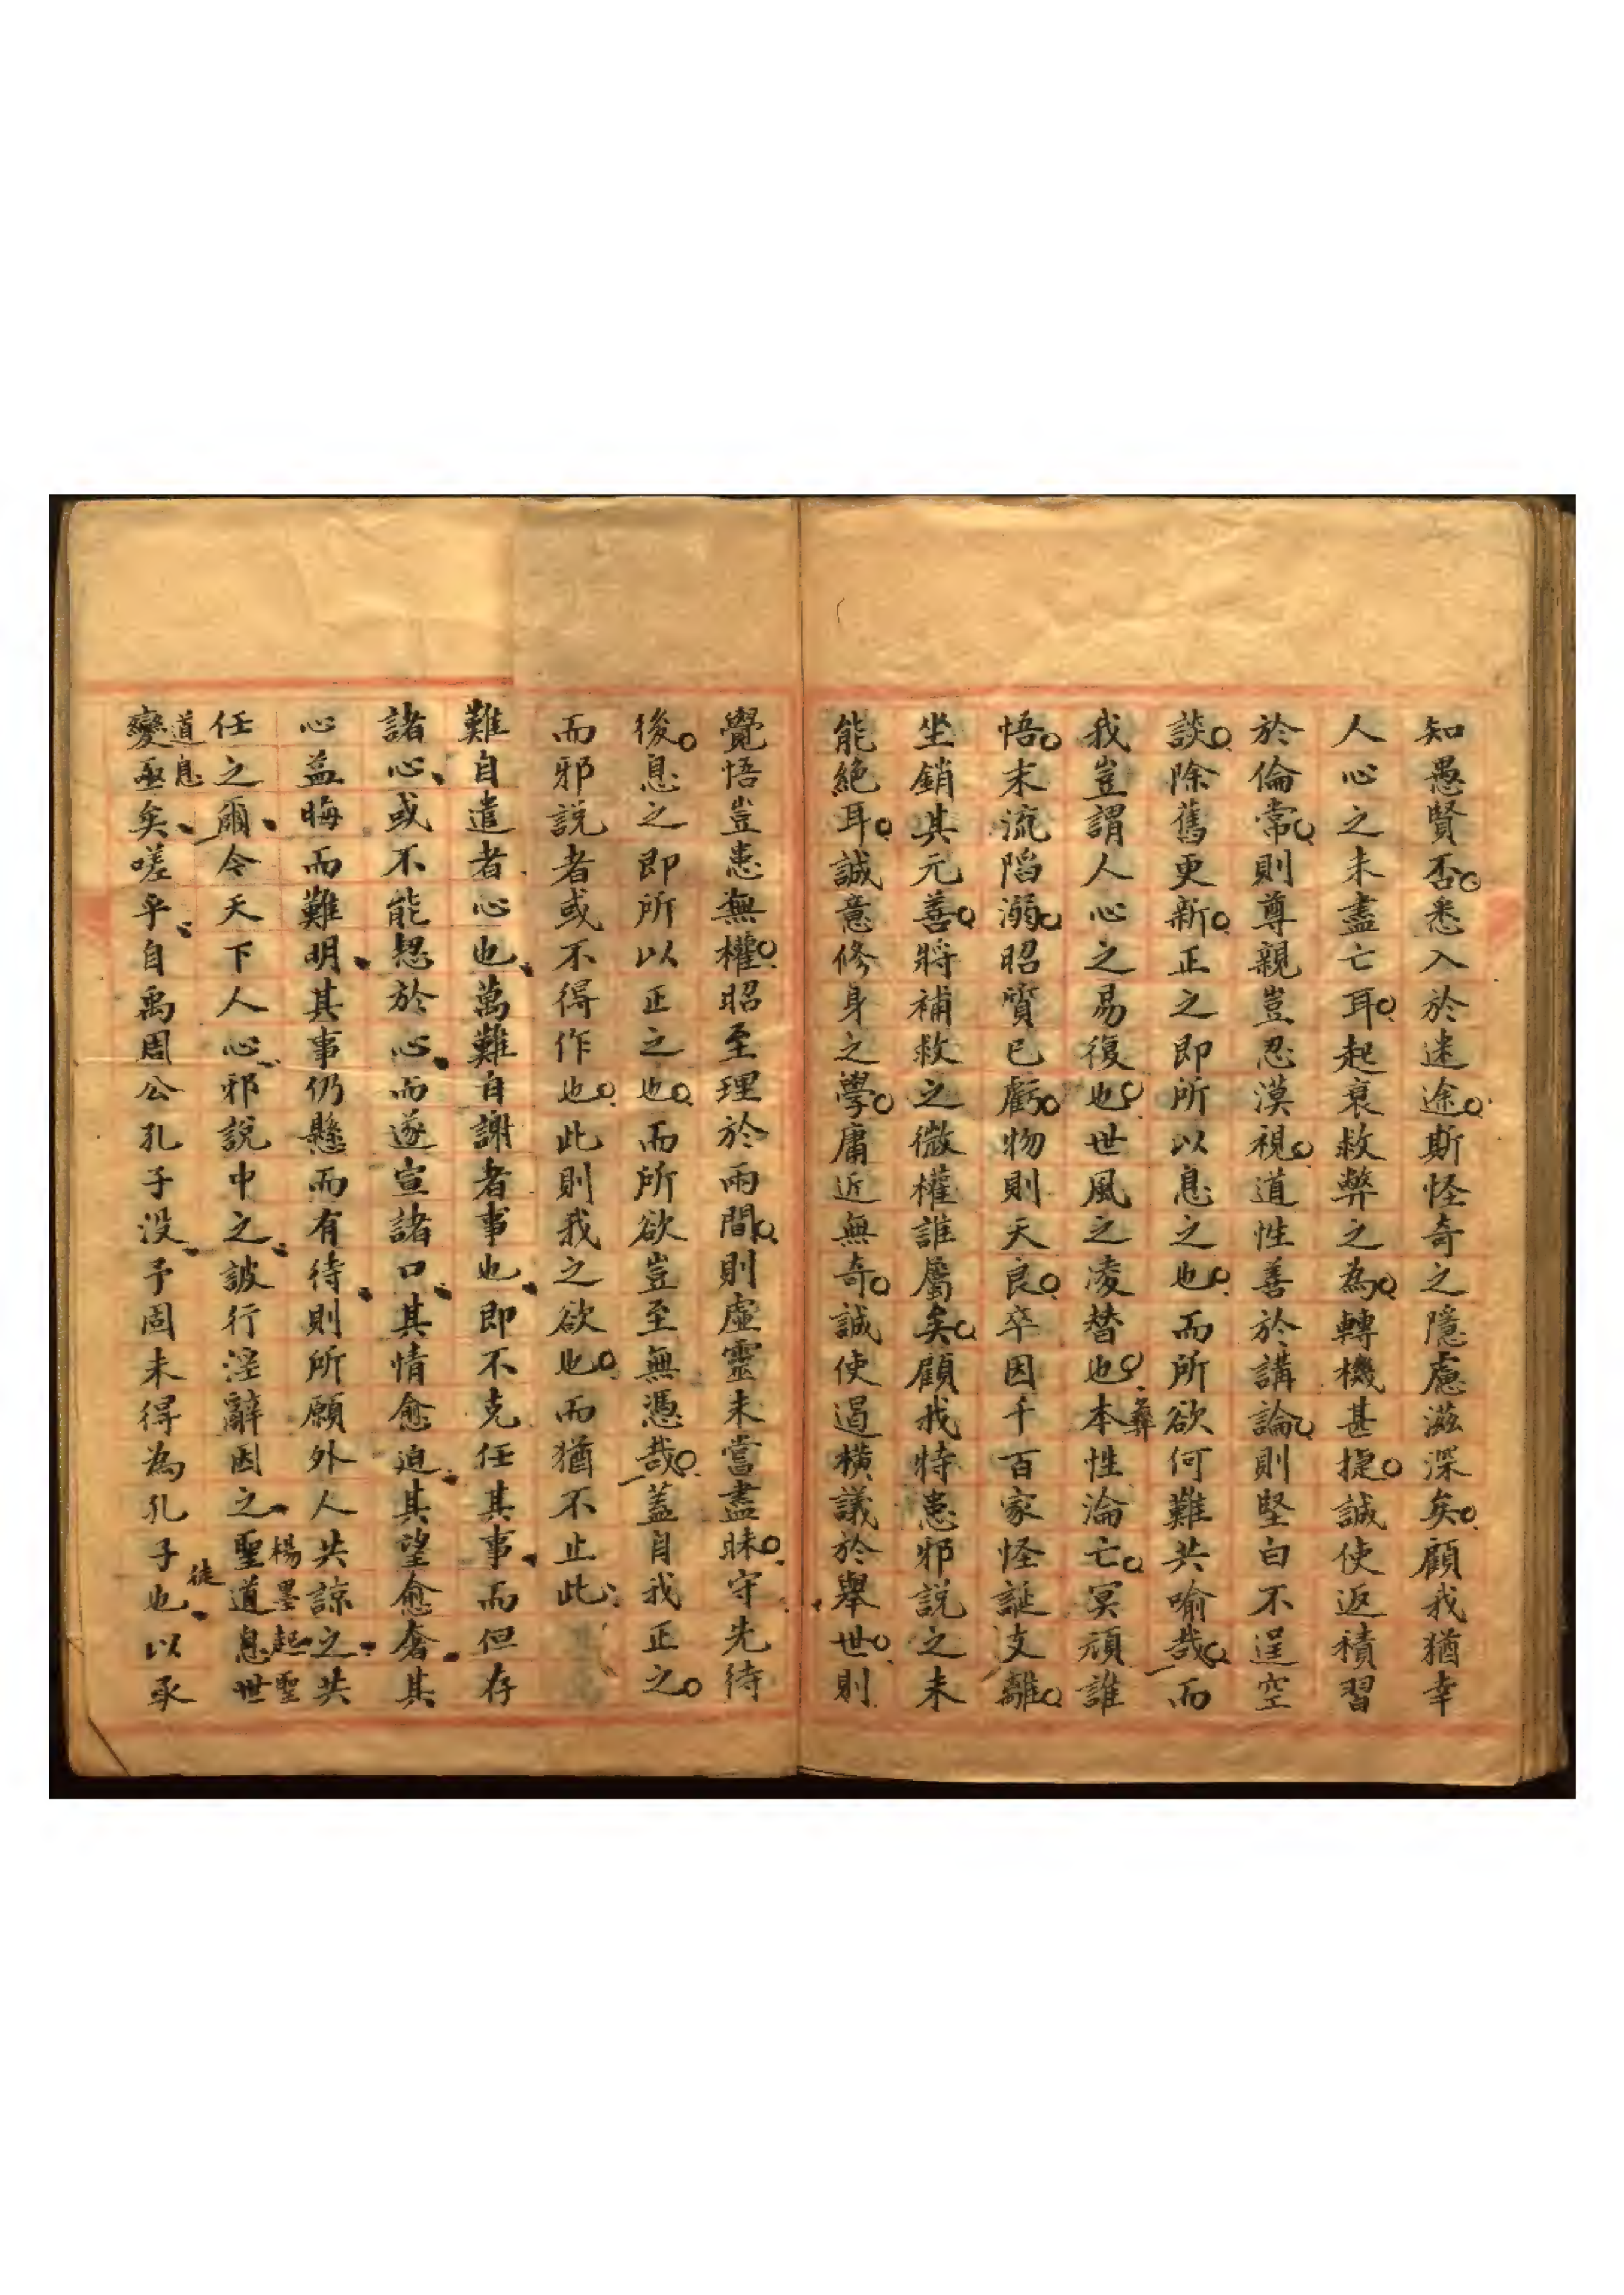 知愚賢否悉入於迷途斯怪奇之隱慮滋深矣顧我猶幸
人心之未盡亡耳起衰救弊之為轉機甚捷誠使返積習
於倫常則尊親豈忍漠視道性善於講論則堅白不逞空
談除舊更新正之即所以息之也而所欲何難共喻哉而
我豈謂人心之易復也世風之凌替也本性淪亡冥頑誰
彝
悟末流陷溺昭質已虧物則天良卒因千百家怪誕支離
坐銷其元善將補救之微權誰屬矣顧我特患邪說之未
能絕耳誠意修身之學庸近無奇誠使遏橫議於舉世則
覺悟豈患無權昭至理於兩間則虛靈未嘗盡昧守先待
後息之即所以正之也而所欲豈至無憑哉蓋自我正之
而邪說者或不得作也此則我之欲也而猶不止此
難自遣者心也萬難自謝者事也即不克任其事而但存
諸心或不能恝於心而遂宣諸口其情愈迫其望愈奢其
心益晦而難明其事仍懸而有待則所願外人共諒之共
任之爾今天下人心邪說中之詖行淫辭因之聖道息世
楊墨起聖
道息
變亟矣嗟乎自禹周公孔子沒予固未得為孔子也以承
徒